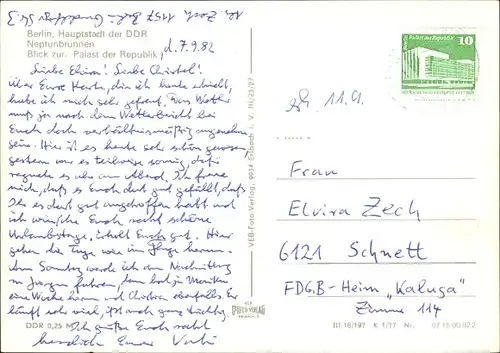 Berlin, Hauptstadt der DDR
Neptunbrunnen
Blick zur Palast der Republik
d. 7.9.82
Liebe Elvira! Liebe Christel!
Über Eure Karte, die ich heute erhielt,
habe ich mich sehr gefreut. Das Wetter
muß ja nach dem Wetterbericht bei
Euch doch verhältnismäßig angenehm
sein. Hier ist es heute sehr schön gewesen
gestern war es teilweise sonnig, dafür
regnete es aber am Abend. Ich freue
mich, daß es Euch dort gut gefällt, daß
Ihr es dort gut angetroffen habt und
ich wünsche Euch recht schöne
Urlaubstage. Erholt Euch gut. Hier
gehen die Tage wie im Fluge herum.
Am Sonntag werde ich am Nachmittag
zu fahren, dann hat ja
eine Woche herum und ebenfalls. Er
läuft sehr viel, ist auch ganz
Ich grüße Euch recht
herzlich Eure
DDR 0,25 M
VEB-Foto-Verlag, 9934 Erlbach i. V. III/33/27
VEB
FOTO-VERLAG
ERLBACH
PALAST DER REPUBLIK BERLIN
10
DEUTSCHE DEMOKRATISCHE REPUBLIK
erh. 11.9.
Frau
Elvira Zech
6121 Schnett
FDGB-Heim „Kaluga"
Zimmer 114
III 18/197 K 1/77 Nr. 07 15 00 022